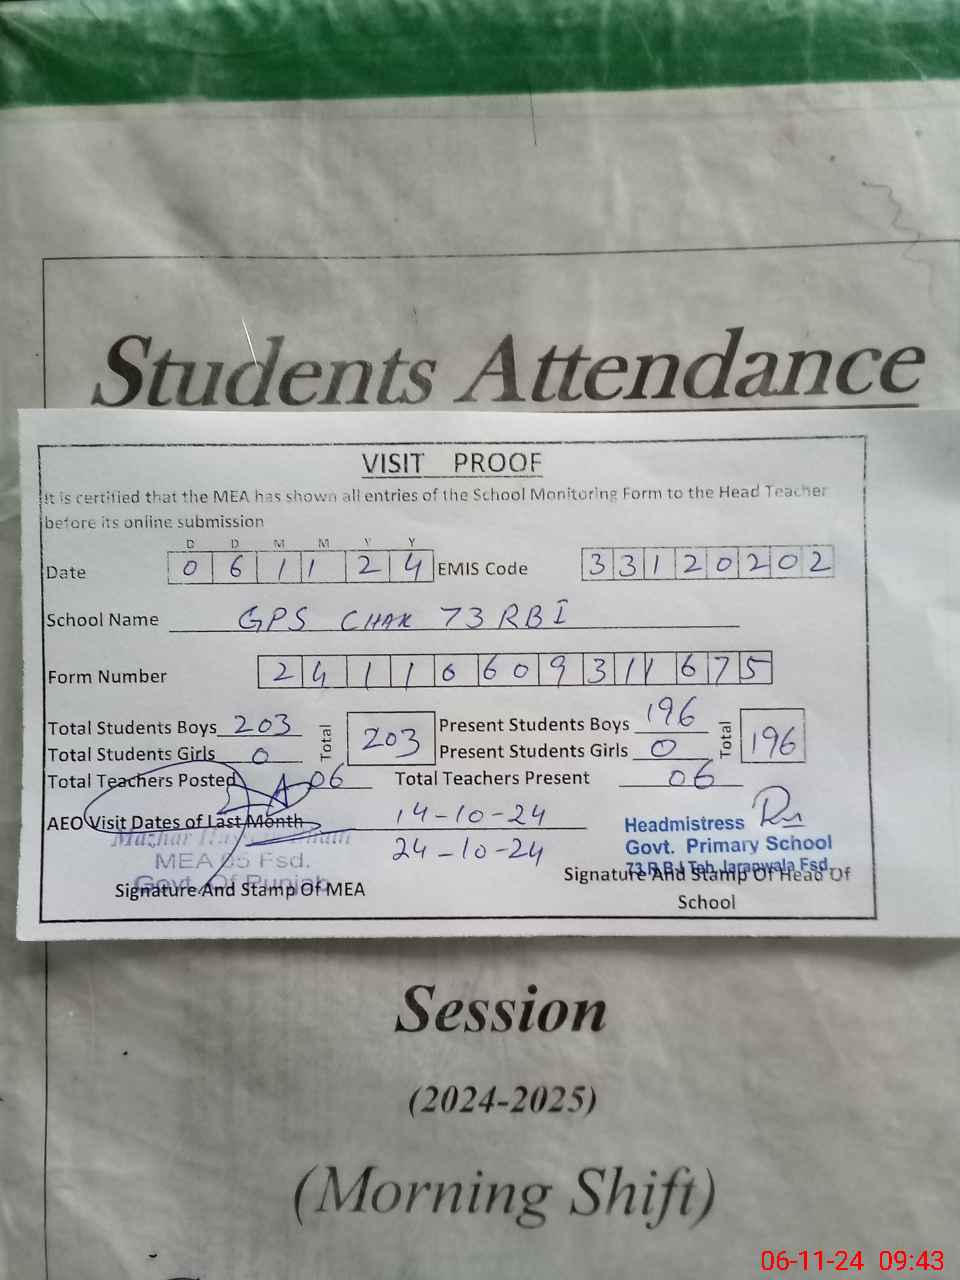 Students Attendance
VISIT PROOF
It is certified that the MEA has shown all entries of the School Monitoring Form to the Head Teacher
before its online submission
D D M M Y Y
Date 0 6 1 1 2 4 EMIS Code 3 3 1 2 0 2 0 2
School Name GPS CHAK 73 RBI
Form Number 2 4 1 1 0 6 0 9 3 1 1 6 7 5
Total Students Boys 203 Total 203 Present Students Boys 196 Total 196
Total Students Girls 0 Present Students Girls 0
Total Teachers Posted 06 Total Teachers Present 06
AEO Visit Dates of Last Month 14-10-24
24-10-24
Mazhar
MEA 05 Fsd.
Govt. Of Punjab
Signature And Stamp Of MEA
Headmistress
Govt. Primary School
73 R.B.I Teh. Jaranwala Fsd.
Signature And Stamp Of Head Of
School
Session
(2024-2025)
(Morning Shift)
06-11-24 09:43